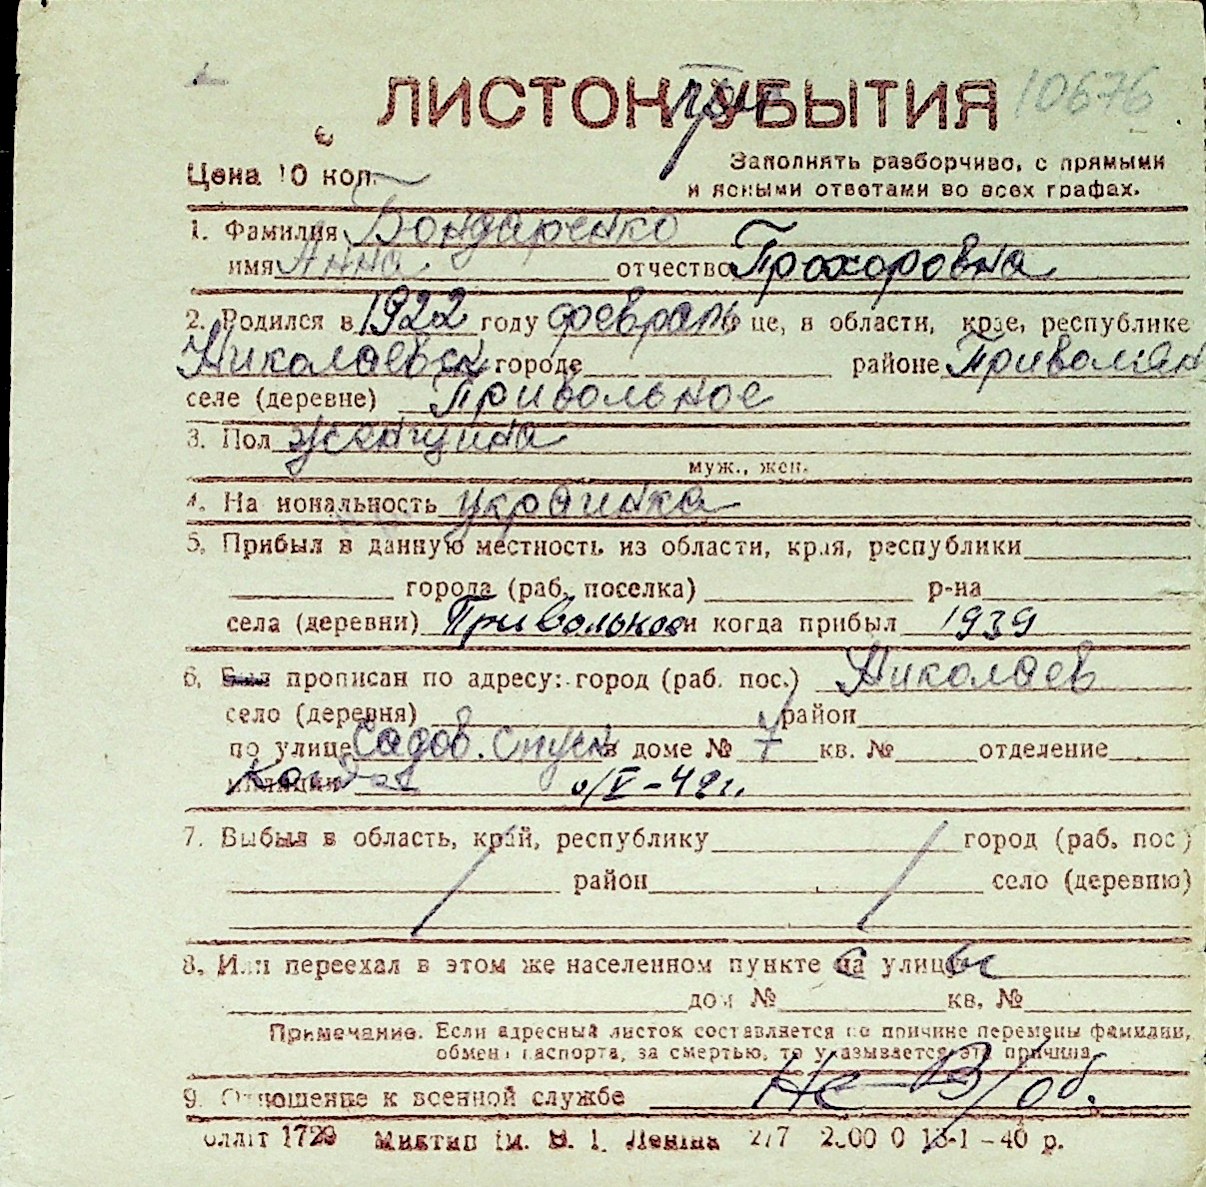 ЛИСТОК при УБЫТИЯ 10676
Цена 10 коп.
Заполнять разборчиво, с прямыми
и ясными ответами во всех графах.
1. Фамилия Бондаренко
имя Анна отчество Прохоровна
2. Родился в 1922 году феврале це, в области, крае, республике
Николаевск городе районе Приволян
селе (деревне) Привольное
3. Пол женщина
муж., жен.
4. Национальность украинка
5. Прибыл в данную местность из области, края, республики
города (раб. поселка) р-на
села (деревни) Привольное и когда прибыл 1939
6. Был прописан по адресу: город (раб. пос.) Николаев
село (деревня) район
по улице Садов. Спуск в доме № 7 кв. № отделение
милиции /V-42г.
7. Выбыл в область, край, республику город (раб. пос.)
район село (деревню)
8. Или переехал в этом же населенном пункте с улицы
дом № кв. №
Примечание. Если адресный листок составляется по причине перемены фамилии,
обмена паспорта, за смертью, то указывается эта причина.
9. Отношение к военной службе Не в/об.
1729 Миктип Ім. В. І. Леніна 2/7 40 р.